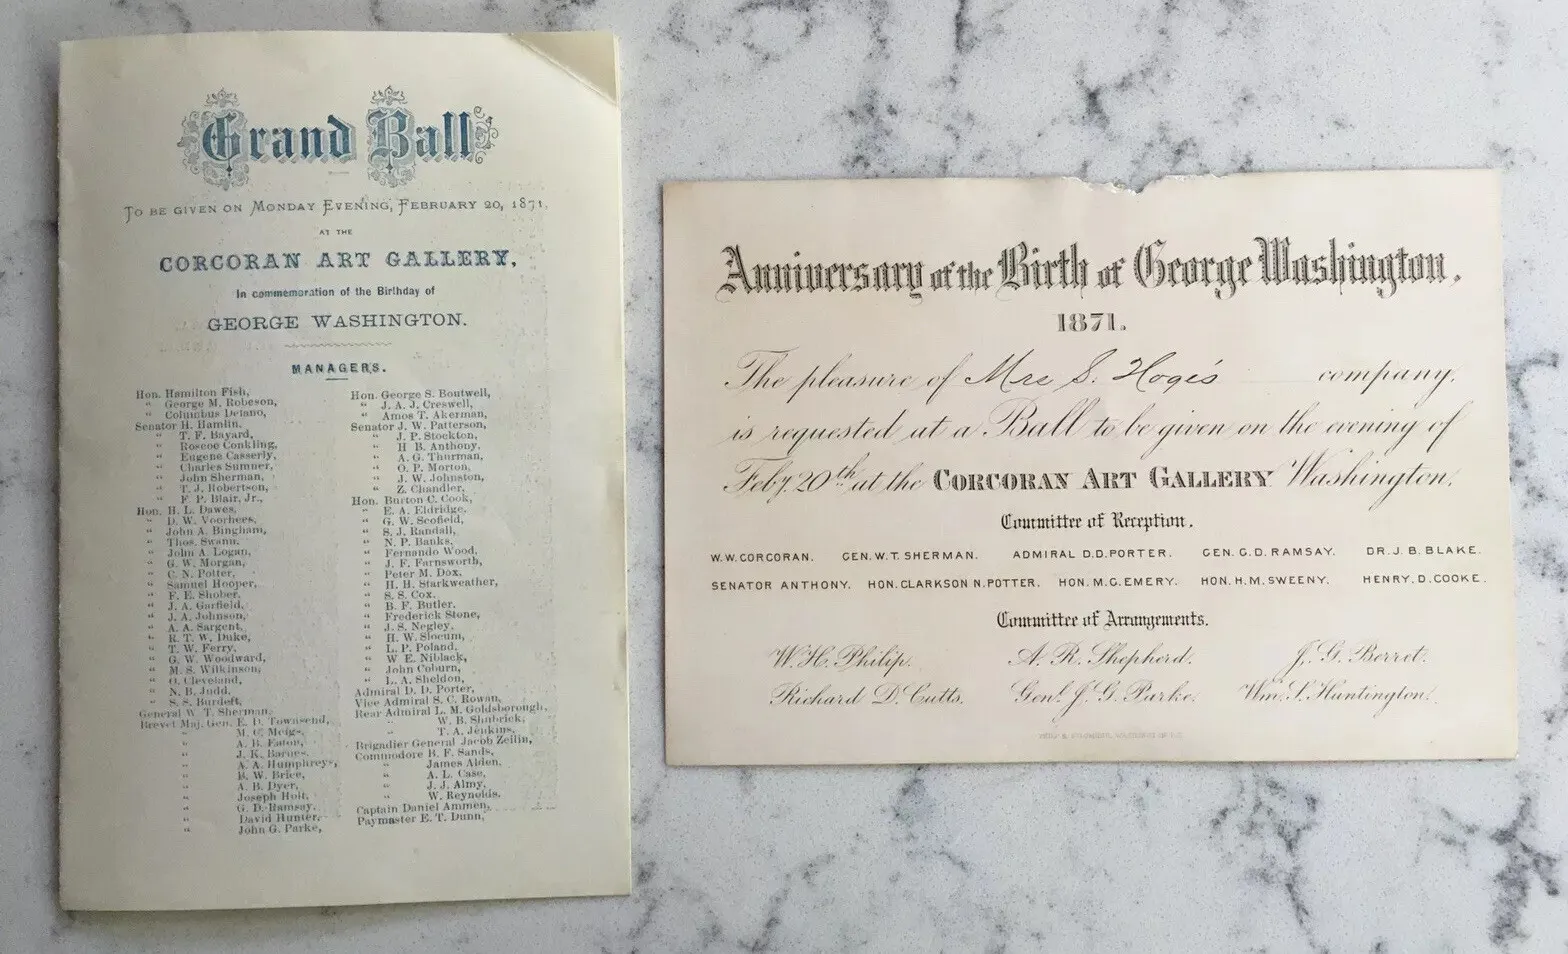 Grand Ball
TO BE GIVEN ON MONDAY EVENING, FEBRUARY 20, 1871,
AT THE
CORCORAN ART GALLERY,
In commemoration of the Birthday of
GEORGE WASHINGTON.
MANAGERS.
Hon. Hamilton Fish,
" George M. Robeson,
" Columbus Delano,
Senator H. Hamlin,
" T. F. Bayard,
" Roscoe Conkling,
" Eugene Casserly,
" Charles Sumner,
" John Sherman,
" T. J. Robertson,
" F. P. Blair, Jr.,
Hon. H. L. Dawes,
" D. W. Voorhees,
" John A. Bingham,
" Thos. Swann,
" John A. Logan,
" G. W. Morgan,
" C. N. Potter,
" Samuel Hooper,
" F. E. Shober,
" J. A. Garfield,
" J. A. Johnson,
" A. A. Sargent,
" R. T. W. Duke,
" T. W. Ferry,
" G. W. Woodward,
" M. S. Wilkinson,
" O. Cleveland,
" N. B. Judd,
" S. S. Burdett,
General W. T. Sherman,
Brevet Maj. Gen. E. D. Townsend,
" M. C. Meigs,
" A. B. Eaton,
" J. K. Barnes,
" A. A. Humphreys,
" B. W. Brice,
" A. B. Dyer,
" Joseph Holt,
" G. D. Ramsay,
" David Hunter,
" John G. Parke,
Hon. George S. Boutwell,
" J. A. J. Creswell,
" Amos T. Akerman,
Senator J. W. Patterson,
" J. P. Stockton,
" H B. Anthony,
" A. G. Thurman,
" O. P. Morton,
" J. W. Johnston,
" Z. Chandler,
Hon. Burton C. Cook,
" E. A. Eldridge,
" G. W. Scofield,
" S. J. Randall,
" N. P. Banks,
" Fernando Wood,
" J. F. Farnsworth,
" Peter M. Dox,
" H. H. Starkweather,
" S. S. Cox,
" B. F. Butler,
" Frederick Stone,
" J. S. Negley,
" H. W. Slocum,
" L. P. Poland,
" W E. Niblack,
" John Coburn,
" L. A. Sheldon,
Admiral D. D. Porter,
Vice Admiral S. C. Rowan,
Rear Admiral L. M. Goldsborough,
" W. B. Shubrick,
" T. A. Jenkins,
Brigadier General Jacob Zeilin,
Commodore B. F. Sands,
" James Alden,
" A. L. Case,
" J. J. Almy,
" W. Reynolds,
Captain Daniel Ammen,
Paymaster E. T. Dunn,
Anniversary of the Birth of George Washington.
1871.
The pleasure of Mrs S. Hoge's company.
is requested at a Ball to be given on the evening of
Feby. 20th at the CORCORAN ART GALLERY Washington.
Committee of Reception.
W. W. CORCORAN. GEN. W. T. SHERMAN. ADMIRAL D. D. PORTER. GEN. G. D. RAMSAY. DR. J. B. BLAKE.
SENATOR ANTHONY. HON. CLARKSON N. POTTER. HON. M. G. EMERY. HON. H. M. SWEENY. HENRY. D. COOKE.
Committee of Arrangements.
W. H. Philip. A. R. Shepherd. J. G. Berret.
Richard D. Cutts. Genl. J. G. Parke. Wm. S. Huntington.